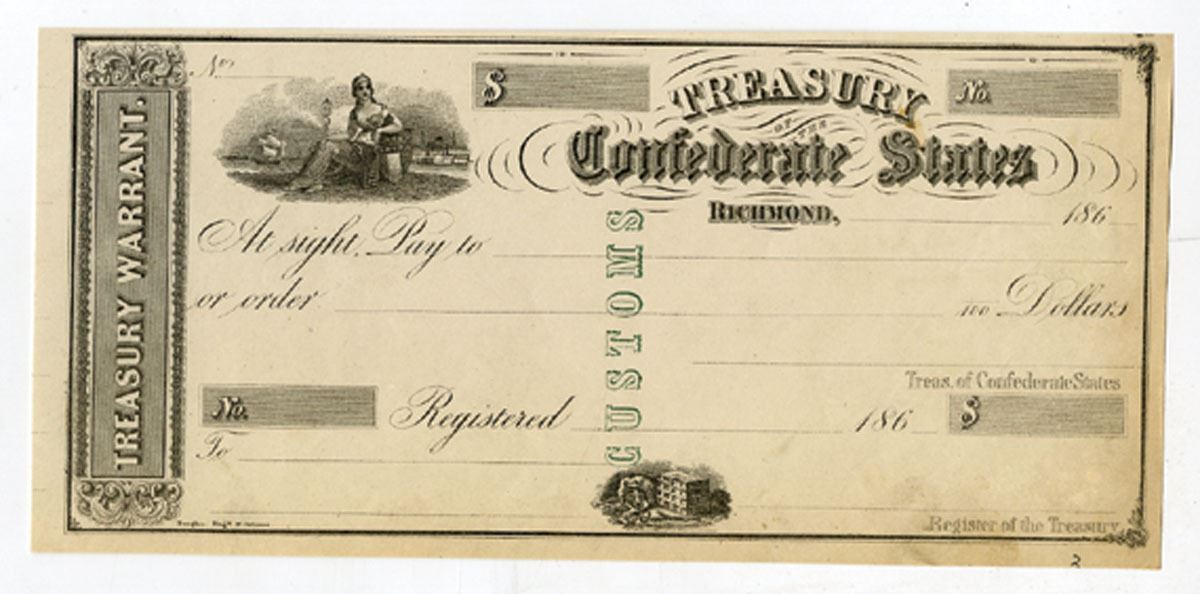 TREASURY WARRANT.
No.
$
TREASURY
OF THE
No.
Confederate States
RICHMOND, 186
At sight, Pay to
or order 100 Dollars
CUSTOMS
Treas. of Confederate States
No. Registered 186 $
To
Register of the Treasury.
3